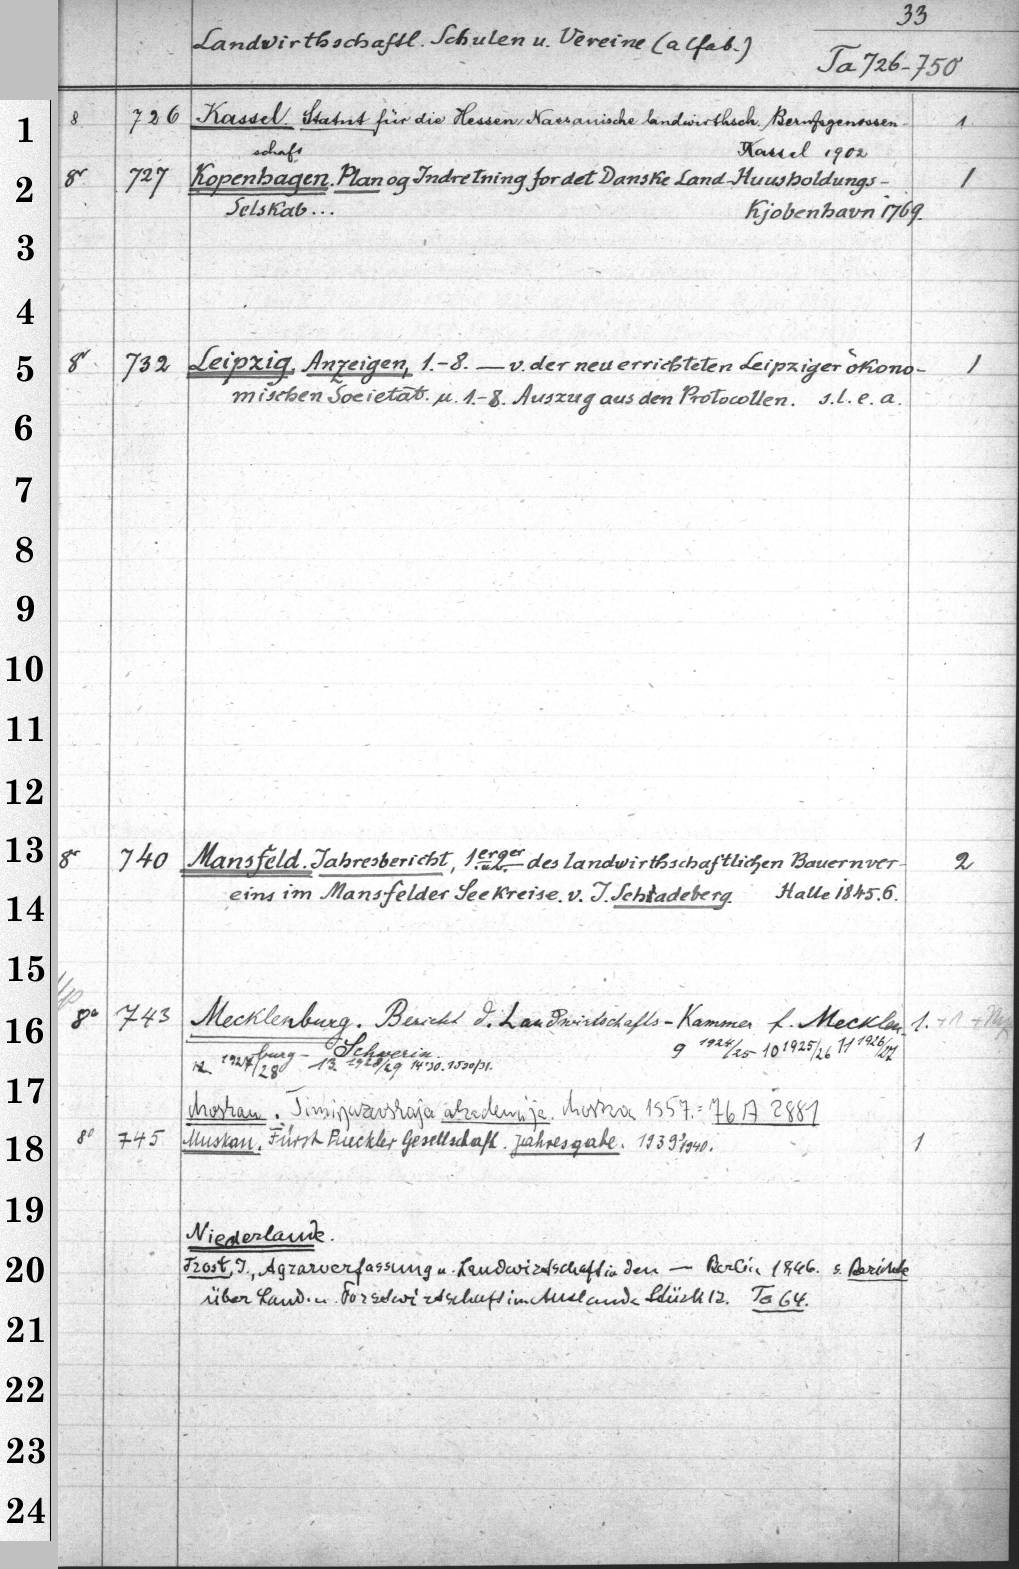 33
Landwirthschaftl. Schulen u. Vereine (alfab.)
Ta 726-750
1
8 726 Kassel Statut für die Hessen-Nassauische landwirthsch. Berufsgenossen- 1
schaft Kassel 1902
2
8º 727 Kopenhagen. Plan og Indretning for det Danske Land-Huusholdungs- 1
Selskab... Kjobenhavn 1769.
3
4
5
8º 732 Leipzig, Anzeigen, 1.-8. — v. der neu errichteten Leipziger ökono- 1
mischen Societät. u. 1.-8. Auszug aus den Protocollen. s.l.e.a.
6
7
8
9
10
11
12
13
8º 740 Mansfeld. Jahresbericht, 1erger u. 2. des landwirthschaftlichen Bauernver- 2
eins im Mansfelder Seekreise. v. J. Schadeberg. Halle 1845.6.
14
15
16
8º 743 Mecklenburg. Bericht d. Landwirtschafts-Kammer f. Mecklen- 1. +1
burg-Schwerin. 9 1924/25 10 1925/26 11 1926/27
12 1927/28 13 1928/29 14 '30. 1930/31.
17
Moskau. Timirjazevskaja akademija. Moskva 1957.: 76 A 2881
18
8º 745 Muskau. Fürst Pueckler Gesellschaft. Jahresgabe. 1939, 1940. 1
19
Niederlande.
20
Frost, J., Agrarverfassung u. Landwirtschaft in den — Berlin 1896. s. Berichte
über Land- u. Forstwirtschaft im Auslande Stück 12. Ta 64.
21
22
23
24